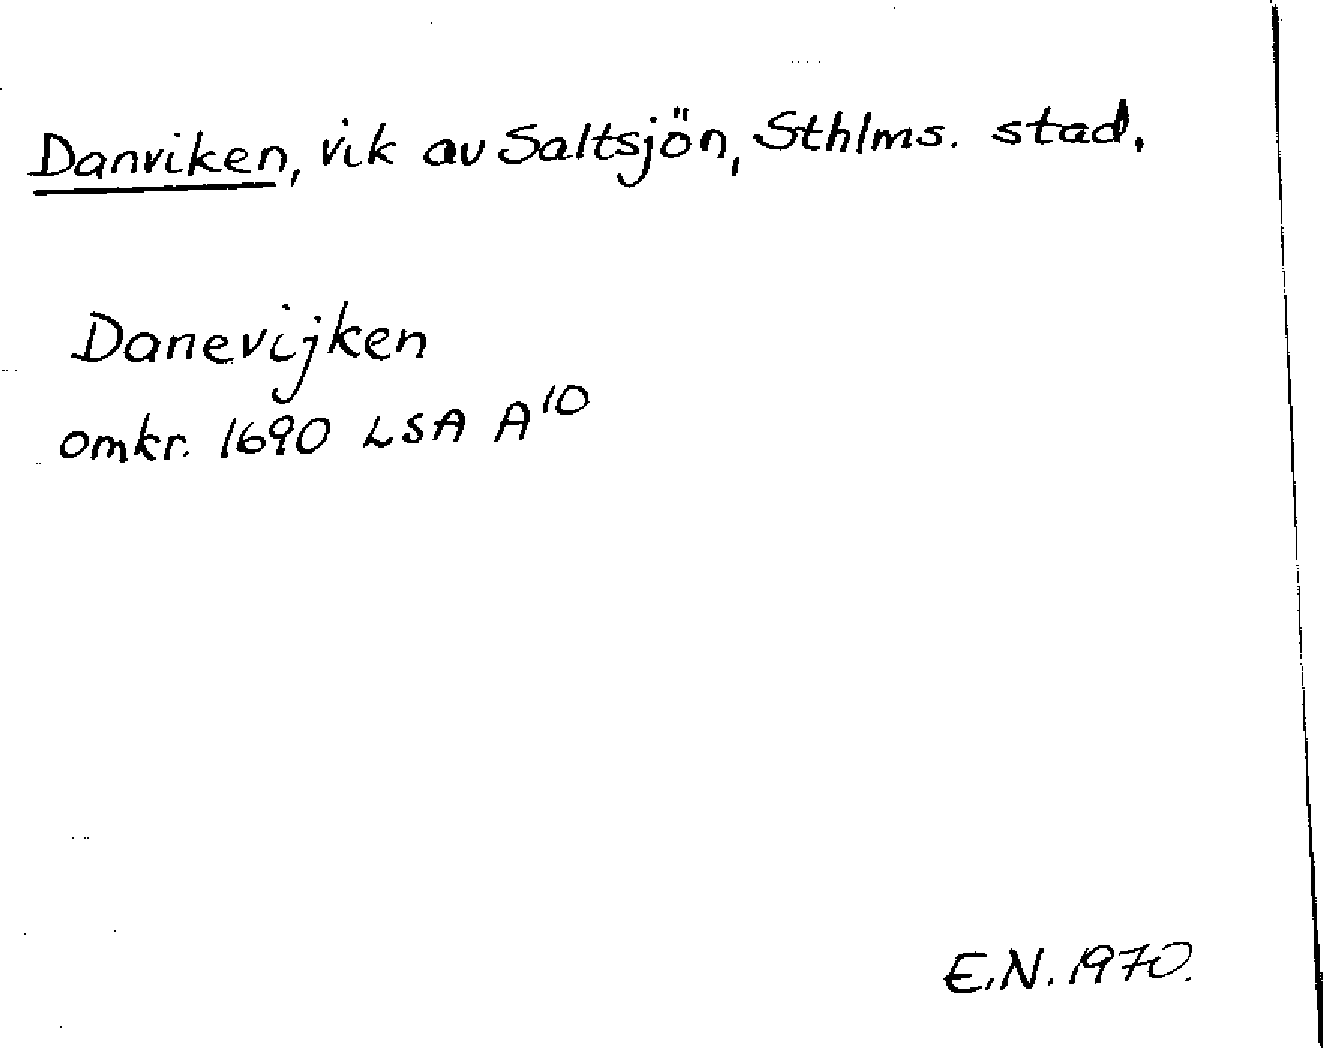 Danviken, vik av Saltsjön, Sthlms. stad.
Danevijken
omkr. 1690 LSA A¹⁰
E.N. 1970.